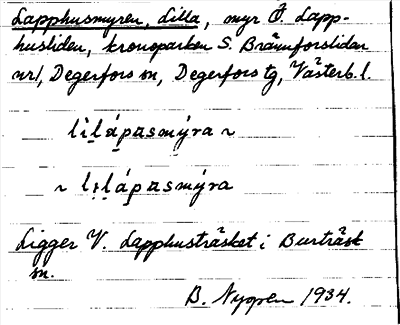 Lapphusmyren, Lilla, myr Ö. Lapp-
husliden, kronoparken S. Brännforsliden
nr1, Degerfors sn, Degerfors tg, Västerb. l.
lìlápasmýra ~
~ lìlápasmýra
Ligger V. Lapphusträsket i Burträsk
sn.
B. Nygren 1934.